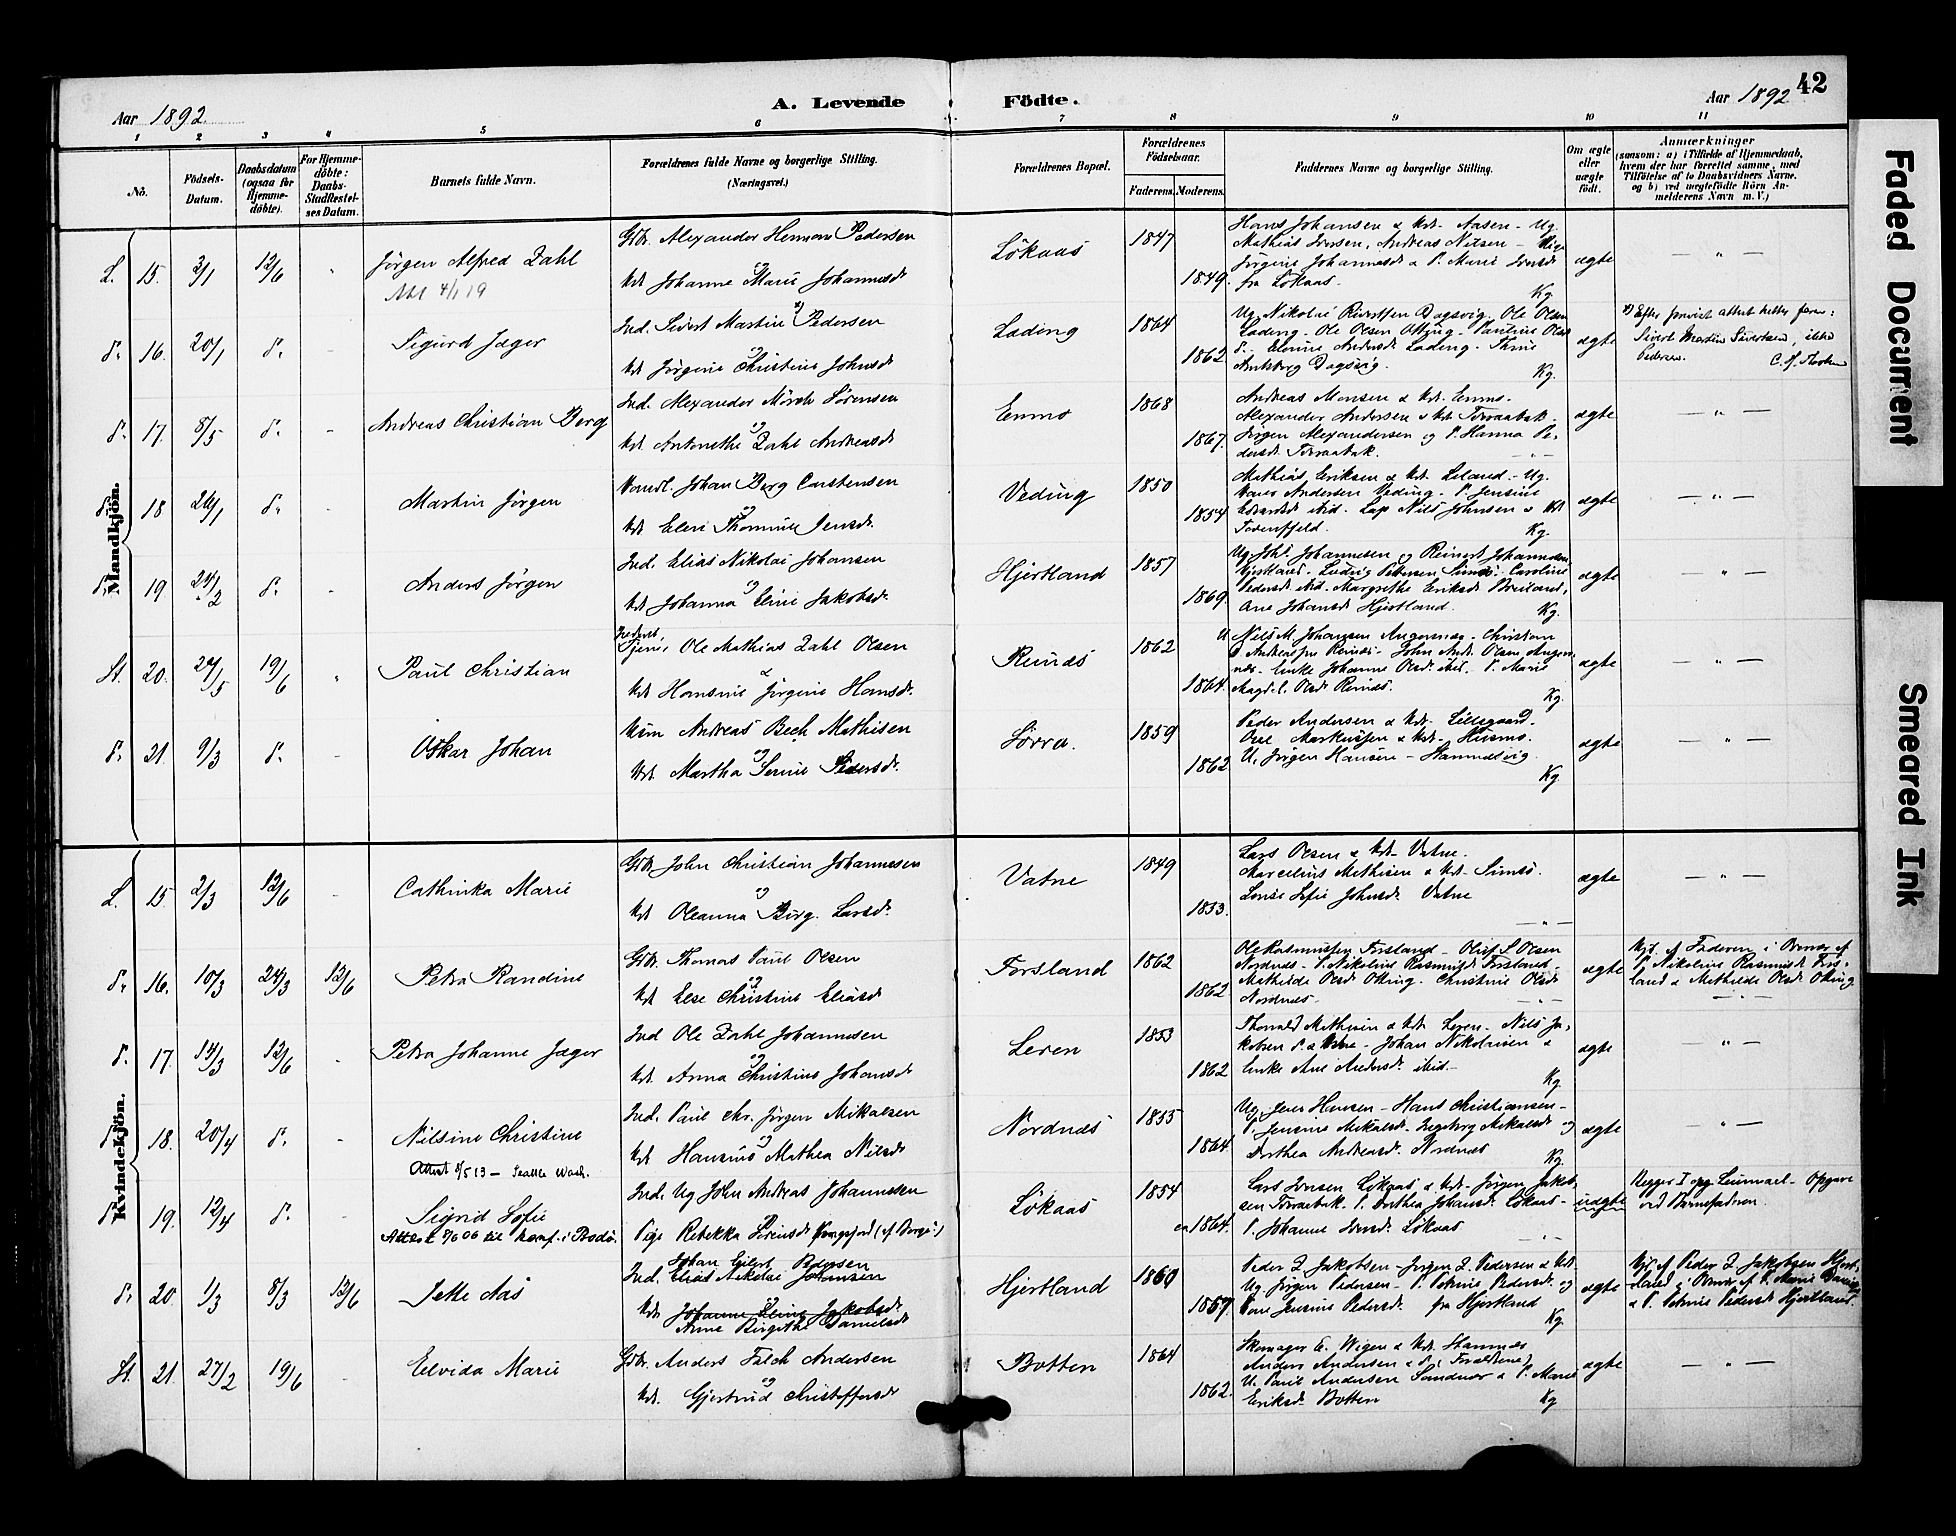 Aar 1892.
A. Levende Födte.
Aar 1892
42
1 2 3 4 5 6 7 8 9 10 11
No.
Födsels-
Datum.
Daabsdatum
(ogsaa for
Hjemme-
döbte).
For Hjemme-
döbte:
Daabs-
Stadfæstel-
ses Datum.
Barnets fulde Navn.
Forældrenes fulde Navne og borgerlige Stilling.
(Næringsvei.)
Forældrenes Bopæl.
Forældrenes
Födselsaar.
Faderens. Moderens.
Faddernes Navne og borgerlige Stilling.
Om ægte
eller
uægte
født.
Anmærkninger
(saasom: a) i Tilfælde af Hjemmedaab,
hvem der har forrettet samme, med
Tilföielse af to Daabsvidners Navne,
og b) ved uægtefödte Börn An-
melderens Navn m. V.)
Mandkjön.
L. 15. 3/1 12/6
Jörgen Alfred Dahl
4/1 19
Gbr. Alexander Herman Pedersen
og
Kst. Johanne Marie Johannesd.
Lökaas
1847
1849.
Hans Johansen & Kst. Aasen - Ug.
Mathias Iversen, Andreas Nilsen -
Jörgine Johannesd. & P. Marie Iversd.
fra Lökaas.
Kg.
ægte
— " —
d. 16. 20/1 d.
Sigurd Jæger
Ind. Sivert Martin Pedersen
og
Kst. Jörgine Christine Johnsd.
Lading
1864
1862
Ug. Nikolai Dagsvig. Ole Olsen
Lading. Ole Olsen Otting. Pauline Olsd.
Lading. Thrine
Dagsvig.
Kg.
ægte
Efter attest hetter faren:
Sivert Martin Sivertsen, ikke
Pedersen.
d. 17. 8/5 d.
Andreas Christian Berg
Ind. Alexander Mörch Sörensen
og
Kst. Antonethe Dahl Andreasd.
Enmo
1868
1867.
Andreas Monsen & Kst. Enmo.
Alexander Andersen & Kst. Forraabak.
Jörgen Alexandersen og P. Hanna Pe-
dersd. Forraabak.
ægte
— " —
d. 18 24/1 d.
Martin Jörgen
Johan Berg Carstensen
og
Kst. Elen Thomine Jensd.
Veding
1850
1854
Mathias Eriksen & Kst. Leland - Ug.
Andersen Veding. P. Jensine
ibid. Lap Nils Johnsen & Kst.
Kg.
ægte
— " —
d. 19 24/2 d.
Anders Jörgen
Ind. Elias Nikolai Johansen
og
Kst. Johanna Eline Jakobsd.
Hjertland
1857
1869.
Ug. Johs. Johannesen og Reinert Johannesen
Hjertland. Ludvig Pettersen Caroline
Pedersd. ibid. Margrethe Eriksd. Breiland,
Ane Johansd. Hjertland.
Kg.
ægte
" —
St. 20. 24/5 19/6
Paul Christian
Tjener Ole Mathias Dahl Olsen
&
Kst. Hansine Jörgine Hansd.
Reinæs
1862
1864.
U. Nils M. Johansen Angersnæs - Christian
Andreassen Reinæs - John Andr. Olsen
Enke Johanne Olsd. ibid. - P. Marie
Magdl. Olsd. Reinæs.
Kg.
ægte
— " —
d. 21. 9/3 d.
Oskar Johan
Andreas Bech Mathisen
og
Kst. Martha Serine Pedersd.
Sörra.
1859
1862
Peder Andersen & Kst.
Markussen & Kst. Husmo.
U. Jörgen Hansen - Hamnesvig.
Kg.
ægte
— " —
Kvindekjön.
L. 15 2/3 12/6
Cathinka Marie
Gbr. John Christian Johannesen
og
Kst. Oleanna Birg. Larsd.
Vatne
1849
1853.
Lars Olsen & Kst. Vatne.
Marcelius Mathisen & Kst.
Lovise Sofie Johnsd. Vatne
— " —
ægte
— " —
d. 16. 10/3 24/3 12/6
Petra Randine
Gbr. Thomas Paul Olsen
og
Kst. Else Christine Eliasd.
Forsland
1862
1862
Ole Rasmussen Forsland - Oluf S. Olsen
Nordnæs - P. Nikoline Rasmusd. Forsland -
Mathilde Olsd. Otting. Christine Olsd.
Nordnæs.
— " —
ægte
Hjd. af Faderen i Overvær af
P. Nikoline Rasmusd. Fors-
land & Mathilde Olsd. Otting
— " —
d. 17. 14/3 12/6
Petra Johanne Jæger
Ind Ole Dahl Johannesen
og
Kst. Anna Christine Johansd.
Leren
1853
1862
Mathisen & Kst. Leren - Nils Ja-
kobsen - Johan Nikolaisen &
Enke Ane Andersd. ibid. -
Kg.
ægte
" —
d. 18. 20/4 d.
Nilsine Christine
Attest 8/5 13 - Seattle Wash.
Ind. Paul Chr. Jörgen Mikalsen
og
Kst. Hansine Mathea Nilsd.
Nordnæs
1855
1864.
Ug. Jens Hansen - Hans Christiansen -
P. Jensine Mikalsd. Ingeborg Mikalsd. og
Dorthea Andreasd. Nordnæs
Kg.
ægte
— " —
d. 19. 12/4 d.
Sigrid Sofie
Attest 7/6 06 til konf. i Bodö.
Ind. Ug John Andreas Johannesen
og
Pige Rebekka Sörensd. (af Borge)
Lökaas
1854
ca 1864.
Lars Iversen Lökaas & Kst. - Jörgen Jakob-
sen Forraabak. P. Dorthea Johansd. Lökaas -
P. Johanne Iversd. Lökaas
— " —
uægte
Begges I opg. Leiermaal - Opgave
ved Barnefadren.
d. 20. 1/3 8/3 12/6
Jette Aas
Johan Eilert Pedersen
Ind. Elias Nikolai Johansen
og
Kst. Johanne Eline Jakobsd.
Anne Birgithe Danielsd.
Hjertland
1860
1857.
Peder Z. Jakobsen - Jörgen Z. Pedersen & Kst.
Ug. Jörgen Pedersen - P. Petrine Pedersd. og
Jensine Pedersd. fra Hjertland
Kg.
ægte
Hjd. af Peder Z. Jakobsen Hjert-
land i Overv. af P. Marie
& P. Petrine Pedersd. Hjertland.
St. 21. 27/2 19/6
Elvida Marie
Gbr. Anders Falch Andersen
og
Kst. Gjertrud Christoffersd.
Botten
1864
1862.
Skomager E. Wigen & Kst. Hamnæs
Anders Andersen & d. (Forældrene)
U. Paul Andersen Sandnæs & P. Marie
Eriksd. Botten
Kg
ægte
— " —
Faded Document
Smeared Ink